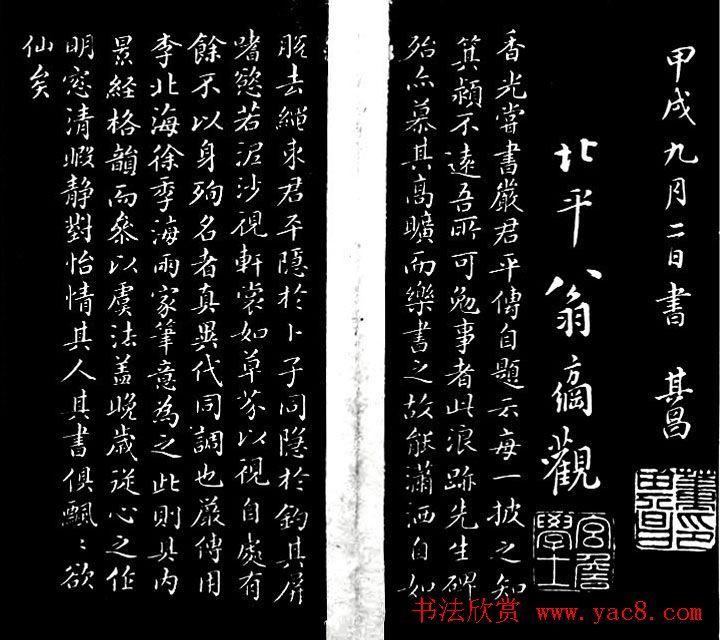 甲戌九月二日書 其昌
董其昌印
北平翁方綱觀
宮詹學士
香光嘗書嚴君平傳自題云每一披之知
箕潁不遠吾所可勉事者此浪跡先生碑
殆亦慕其高曠而樂書之故能瀟洒自如
脫去繩束君平隱於卜子同隱於釣其屏
嗜慾若泥沙視軒裳如草芥以視自處有
餘不以身殉名者真異代同調也嚴傳用
李北海徐季海兩家筆意為之此則具內
景經格韻而參以虞法蓋晚歲從心之作
明窓清暇靜對怡情其人其書俱飄〻欲
仙矣
书法欣赏 www.yac8.com